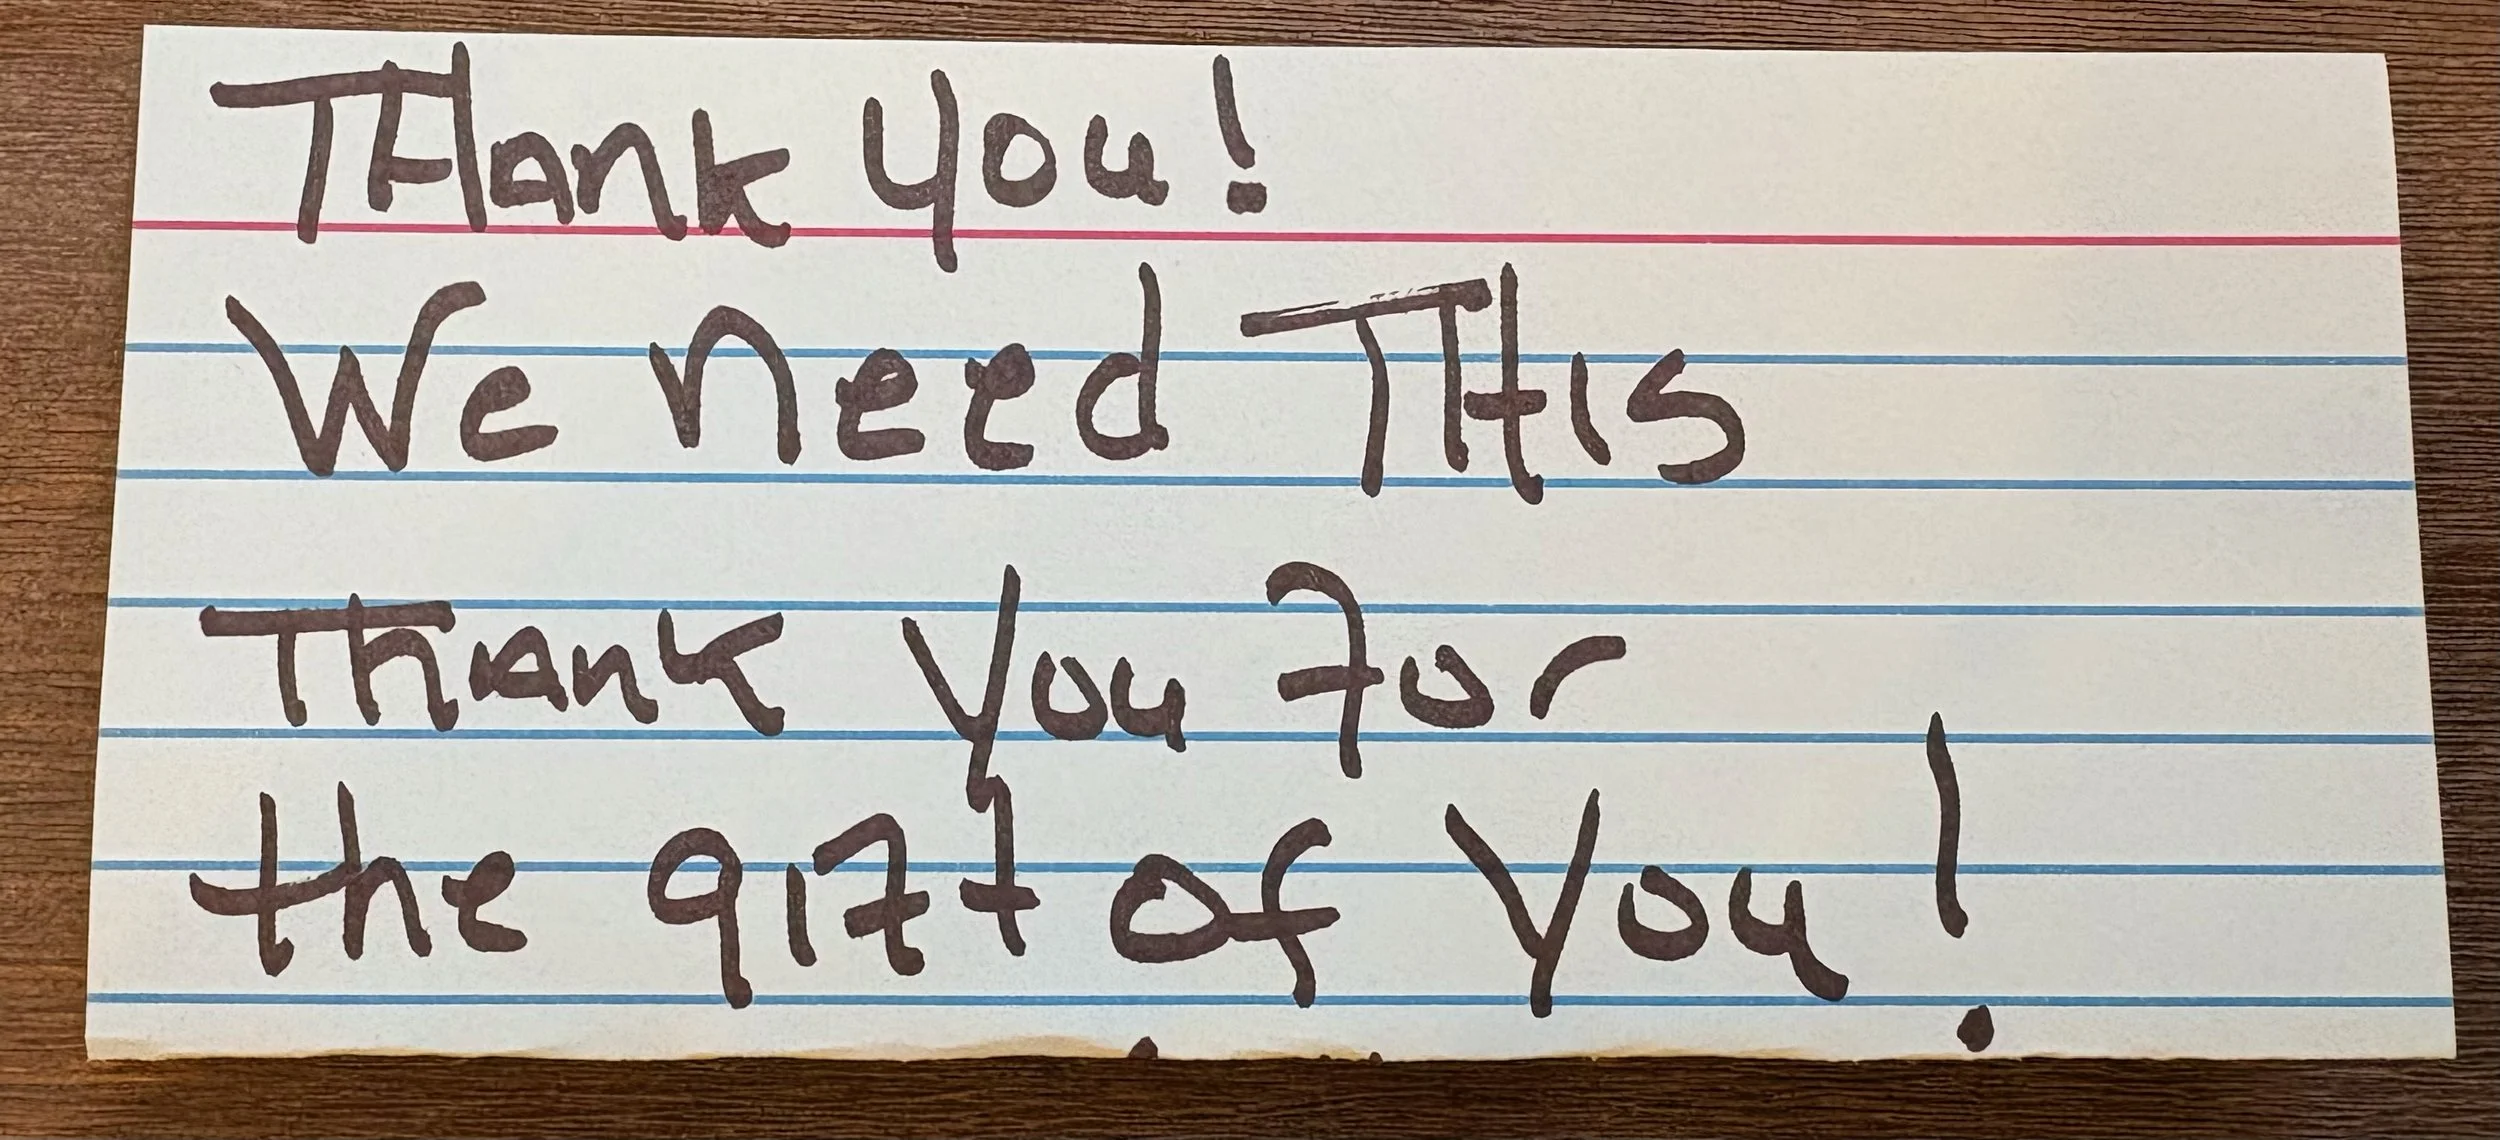 THank you!
We need THis
Thank you for
the gift of you!